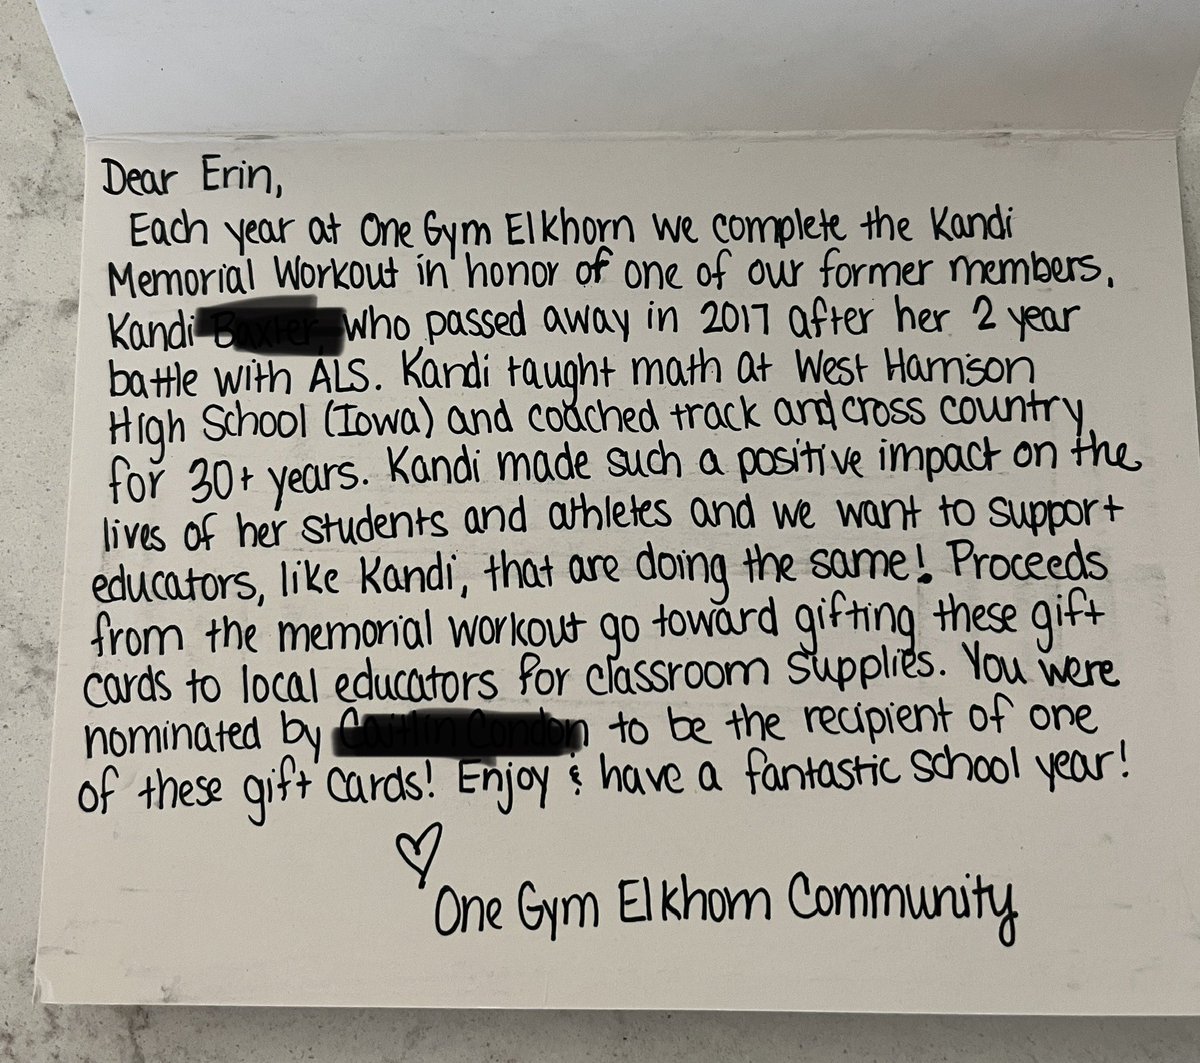 Dear Erin,
Each year at One Gym Elkhorn we complete the Kandi
Memorial Workout in honor of one of our former members,
Kandi who passed away in 2017 after her 2 year
battle with ALS. Kandi taught math at West Harrison
High School (Iowa) and coached track and cross country
for 30+ years. Kandi made such a positive impact on the
lives of her students and athletes and we want to support
educators, like Kandi, that are doing the same! Proceeds
from the memorial workout go toward gifting these gift
cards to local educators for classroom supplies. You were
nominated by to be the recipient of one
of these gift cards! Enjoy & have a fantastic school year!
♡
One Gym Elkhorn Community